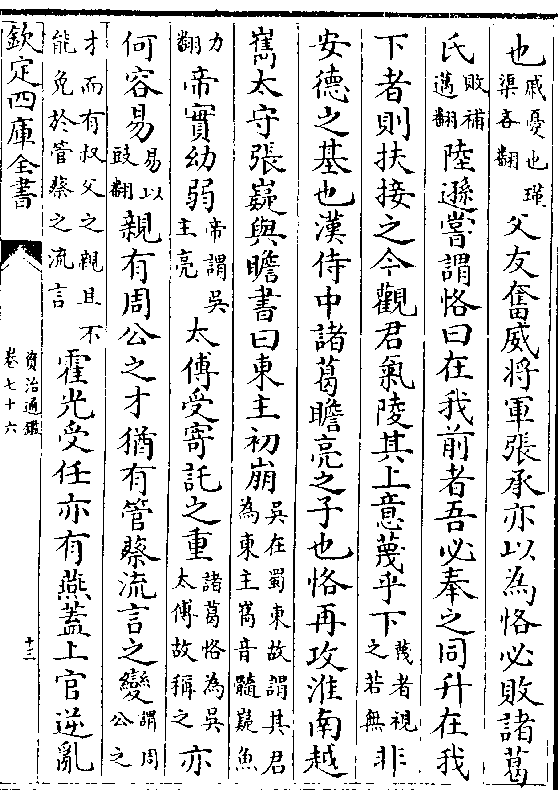 也戚憂也瑾渠吝翻父友奮威將軍張承亦以為恪必敗諸葛
氏敗補邁翻陸遜嘗謂恪曰在我前者吾必奉之同升在我
下者則扶接之今觀君氣陵其上意蔑乎下蔑者視之若無非
安德之基也漢侍中諸葛瞻亮之子也恪再攻淮南越
嶲太守張嶷與瞻書曰東主初崩吳在蜀東故謂其君為東主嶲音髓嶷魚
力翻帝實幼弱帝謂吳主亮太傅受寄託之重諸葛恪為吳太傅故稱之亦
何容易易以豉翻親有周公之才猶有管蔡流言之變謂周公之
才而有叔父之親且不能免於管蔡之流言霍光受任亦有燕蓋上官逆亂
欽定四庫全書
資治通鑑
卷七十六
十三